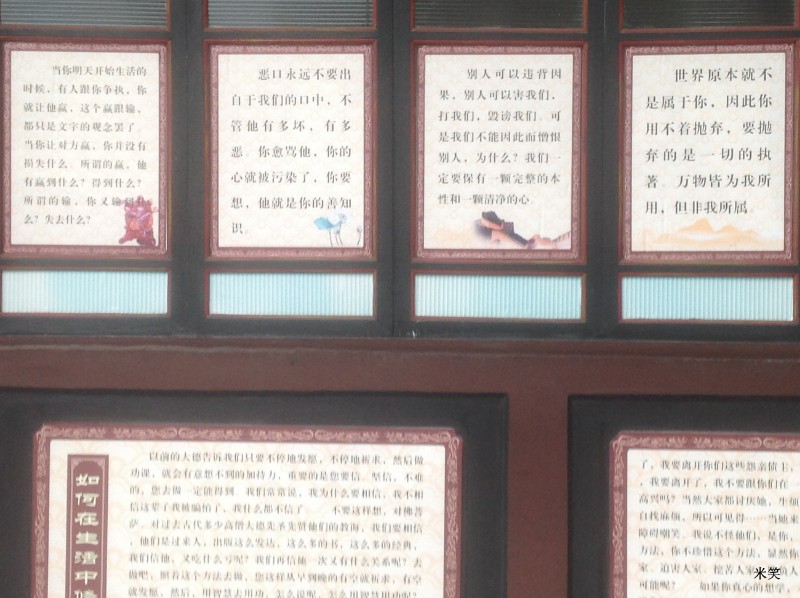 当你明天开始生活的
时候，有人跟你争执，你
就让他赢，这个赢跟输，
都只是文字的观念罢了。
当你让对方赢，你并没有
损失什么。所谓的赢，他
有赢到什么？得到什么？
所谓的输，你又输到什
么？失去什么？
恶口永远不要出
自于我们的口中，不
管他有多坏，有多
恶。你愈骂他，你的
心就被污染了，你要
想，他就是你的善知
识。
别人可以违背因
果，别人可以害我们，
打我们，毁谤我们。可
是我们不能因此而憎恨
别人，为什么？我们一
定要保有一颗完整的本
性和一颗清净的心。
世界原本就不
是属于你，因此你
用不着抛弃，要抛
弃的是一切的执
著。万物皆为我所
用，但非我所属。
如何在生活中修
以前的大德告诉我们只要不停地发愿，不停地祈求，然后做
功课，就会有意想不到的加持力，重要的是您要信。坚信，不难
的，您去做一定能得到。我们常常说，我为什么要相信，我不相
信这辈子我被骗怕了，我什么都不信了……不要这样想，对佛菩
萨，对过去古代多少高僧大德先圣先贤他们的教诲，我们要相信
，他们是过来人，出版这么发达，这么多的书，这么多的经典，
我们信他，又吃什么亏呢？我们再信他一次又有什么关系呢？去
做吧，照着这个方法去做，您这样从早到晚的有空就祈求，有空
就发愿，然后，用智慧去用功，怎么说呢，怎么用智慧用功呢？
了，我要离开你们这些怨亲借主，
，我要离开了，我不要跟你们在
高兴吗？当然大家都讨厌她，生烦
自找麻烦，所以可见得……当她来
障碍嘲笑。我说不怪他们，是你，
方法，你不珍惜这个方法，显然你
家、迫害人家、挖苦人家
可能呢？ 如果你真心的想学，
米笑